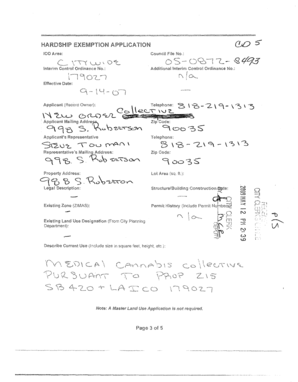 CD 5
HARDSHIP EXEMPTION APPLICATION
ICO Area:
CITYWIDE
Council File No.:
05-0872-
Interim Control Ordinance No.:
179027
Additional Interim Control Ordinance No.:
n/a
Effective Date:
9-14-07
Applicant (Record Owner):
NEW ORDER Collective
Telephone: 818-219-1313
Applicant Mailing Address:
998 S. Robertson
Zip Code:
90035
Applicant's Representative
STEVE TOUMANI
Telephone:
818-219-1313
Representative's Mailing Address:
998 S Robertson
Zip Code:
90035
Property Address:
988 S. Robertson
Lot Area (sq. ft.):
Legal Description:
Structural/Building Construction Date:
Existing Zone (ZIMAS)
Permit History (Include Permit Numbers)
n/a
Existing Land Use Designation (From City Planning
Department):
Describe Current Use (include size in square feet, height, etc.):
MEDICAL CANNABIS COLLECTIVE
PURSUANT TO PROP 215
SB 420 + LA ICO 179027
CITY CLERK
2009 MAR 12 PM 2:39
P/S
Note: A Master Land Use Application is not required.
Page 3 of 5